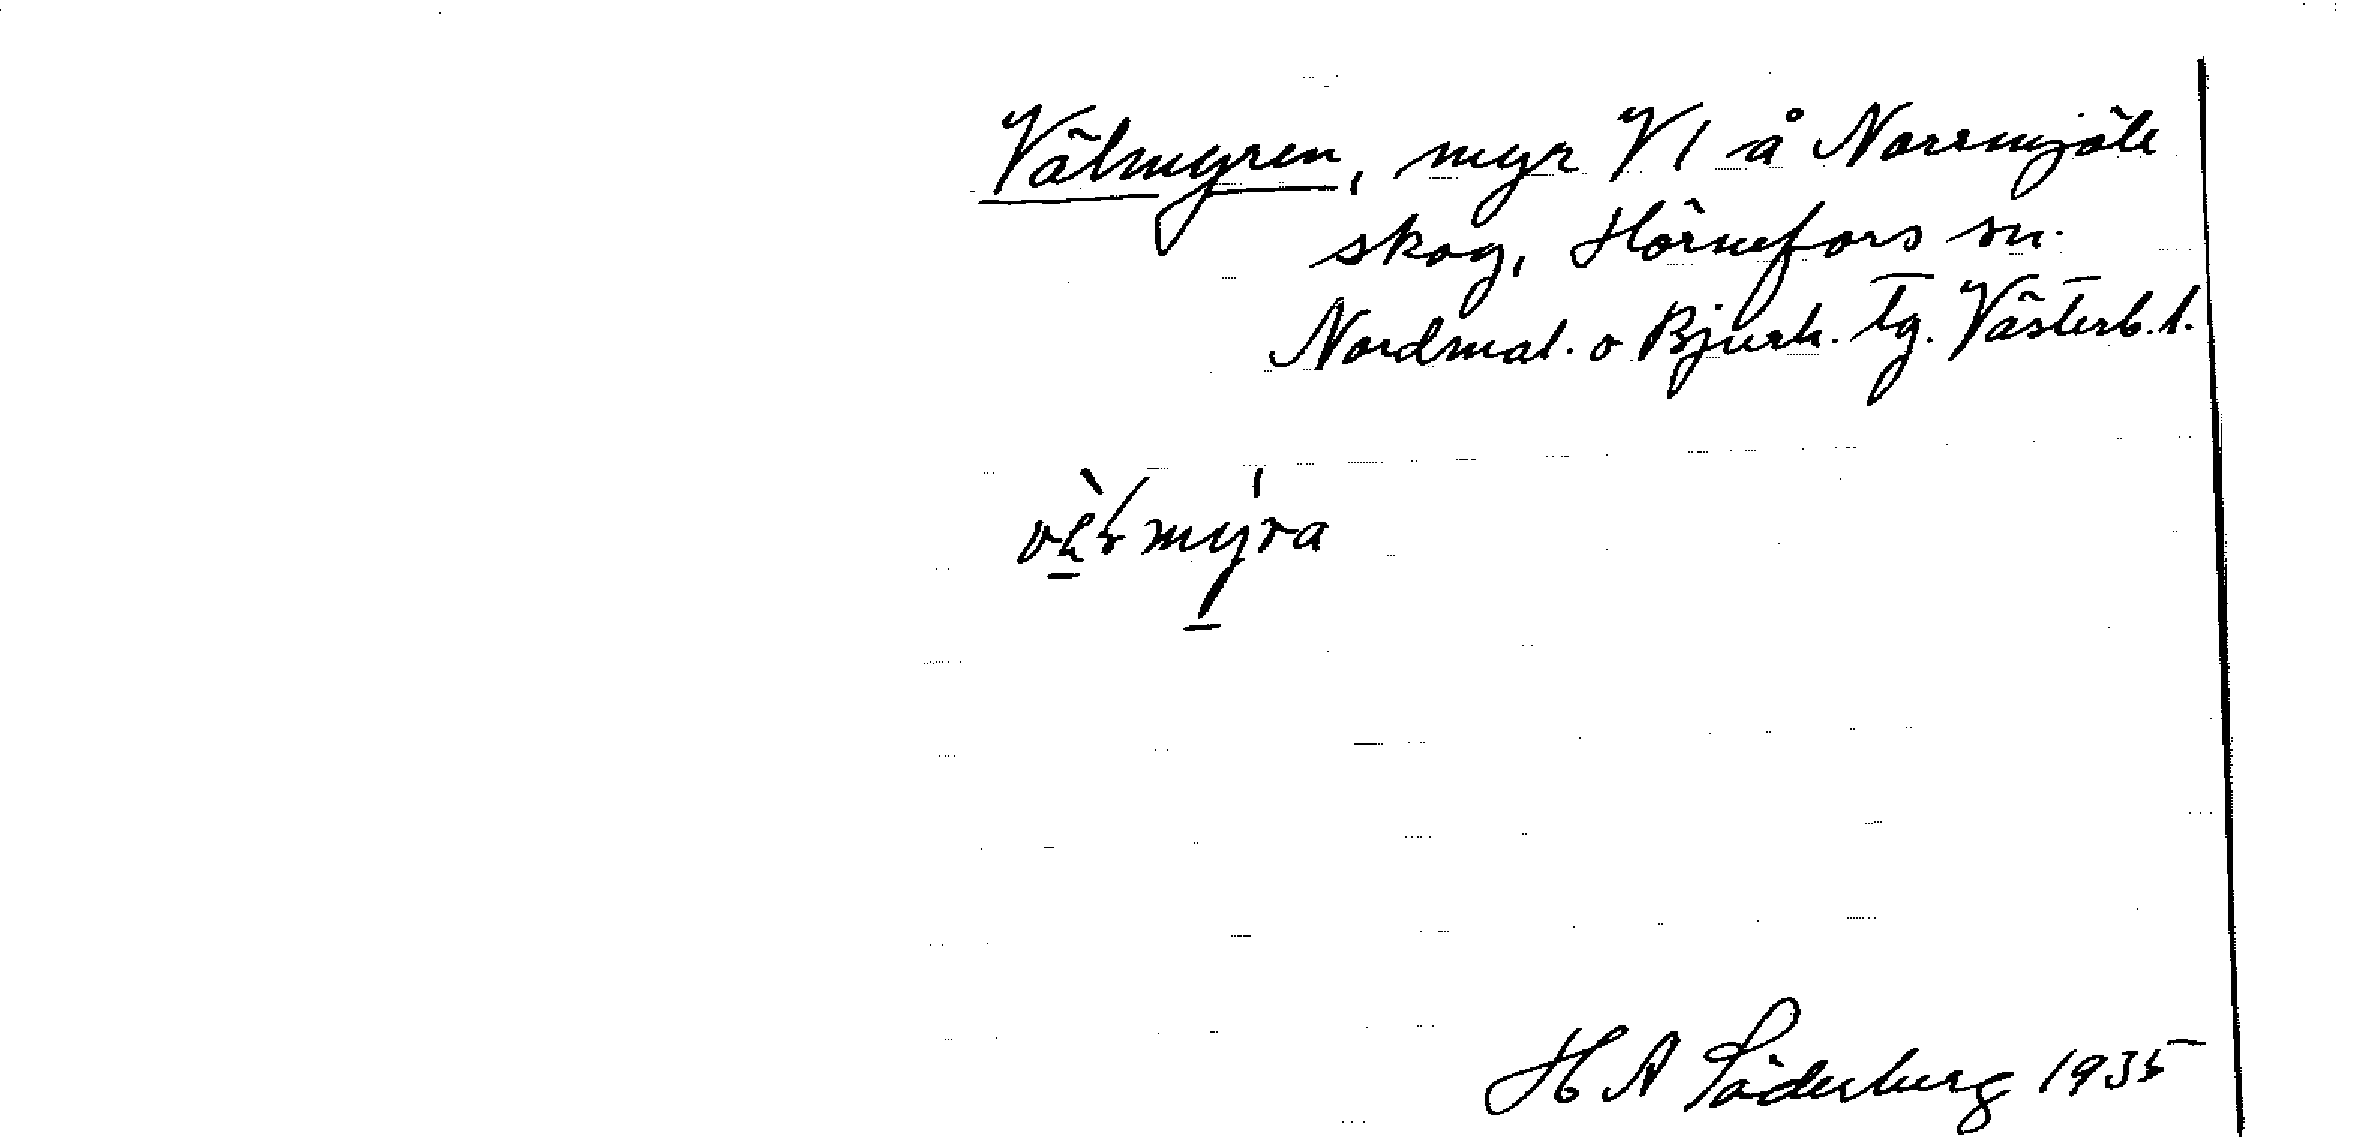 Välmyren, myr V1 å Norrmjöle
skog, Hörnefors sn.
Nordmal. o Bjurh. tg. Västerb. l.
H A Söderberg 1935